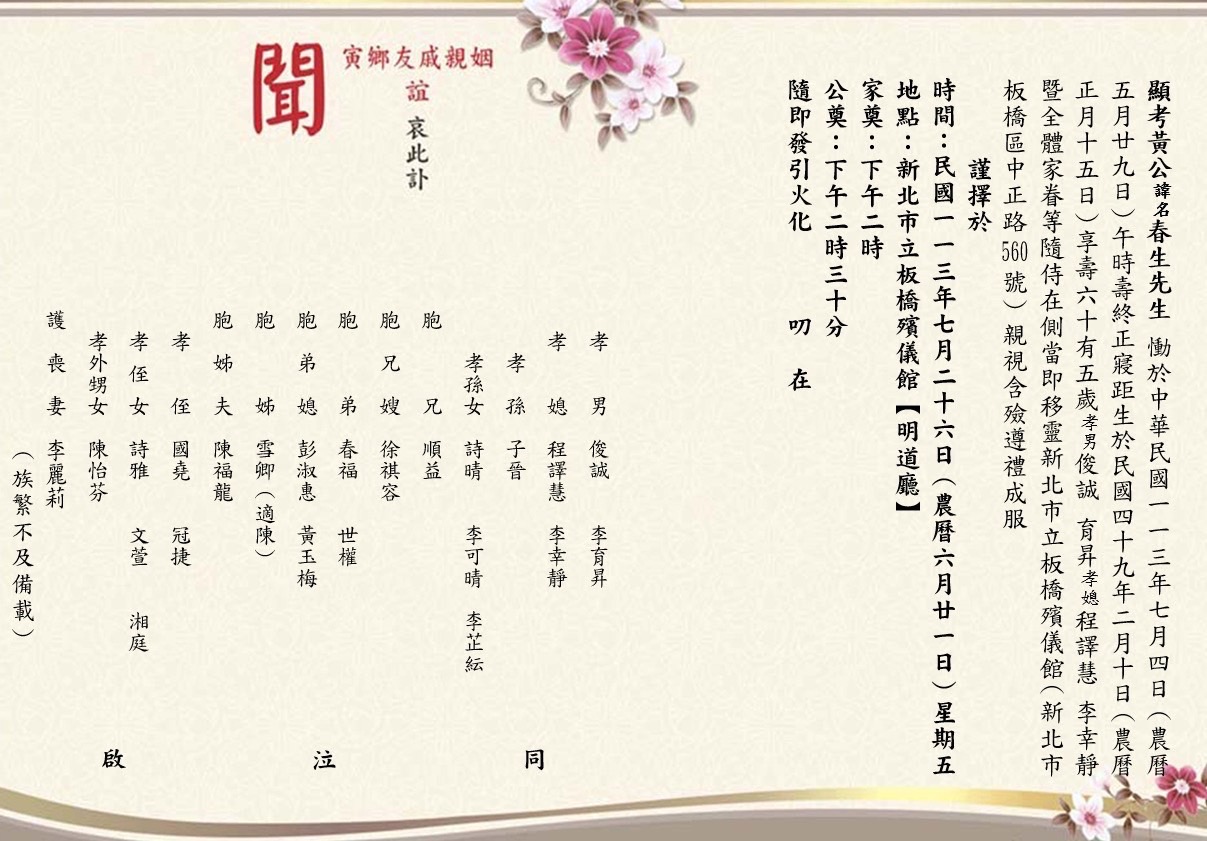 顯考黃公諱名春生先生 慟於中華民國一一三年七月四日（農曆
五月廿九日）午時壽終正寢距生於民國四十九年二月十日（農曆
正月十五日）享壽六十有五歲孝男俊誠 育昇孝媳程譯慧 李幸靜
暨全體家眷等隨侍在側當即移靈新北市立板橋殯儀館（新北市
板橋區中正路560號）親視含殮遵禮成服
謹擇於
時間：民國一一三年七月二十六日（農曆六月廿一日）星期五
地點：新北市立板橋殯儀館【明道廳】
家奠：下午二時
公奠：下午二時三十分
隨即發引火化 叨 在
姻親戚友鄉寅
誼 哀此訃
聞
孝男 俊誠 李育昇
孝媳 程譯慧 李幸靜
孝孫 子晉
孝孫女 詩晴 李可晴 李芷紜
胞兄 順益
胞兄嫂 徐祺容
胞弟 春福 世權
胞弟媳 彭淑惠 黃玉梅
胞姊 雪卿（適陳）
胞姊夫 陳福龍
孝侄 國堯 冠捷
孝侄女 詩雅 文萱 湘庭
孝外甥女 陳怡芬
護喪妻 李麗莉
（族繁不及備載）
同 泣 啟